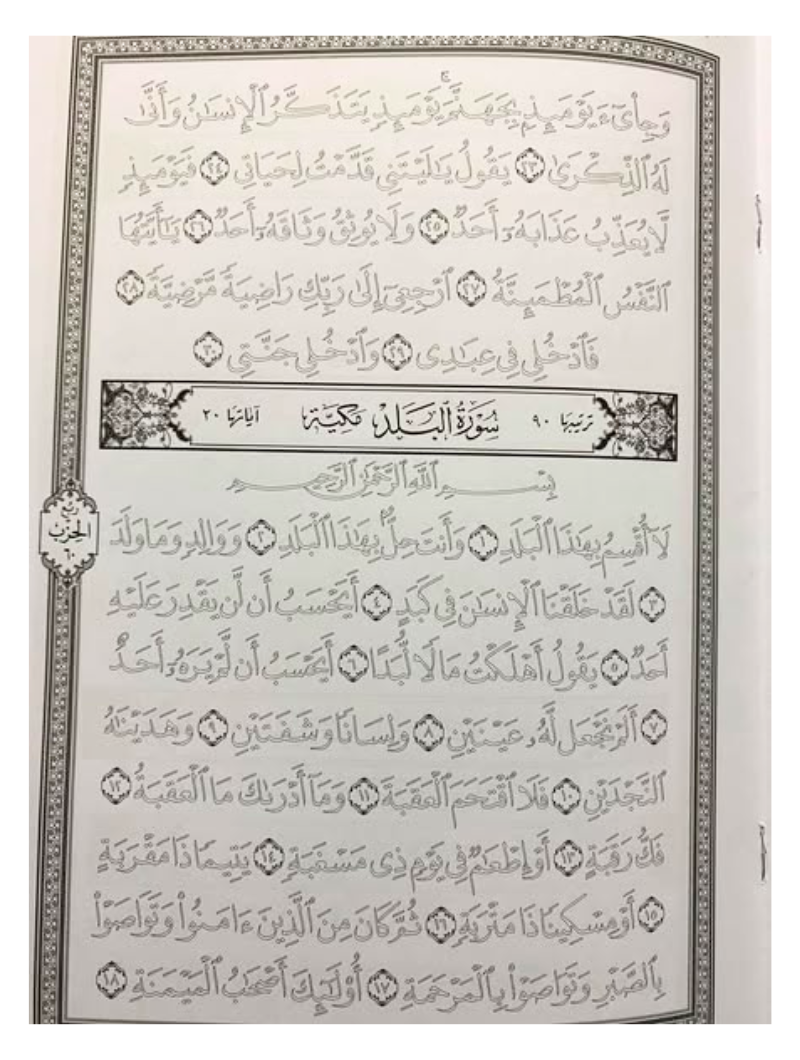 وَجِا۟ىٓءَ يَوْمَئِذٍۭ بِجَهَنَّمَ ۚ يَوْمَئِذٍ يَتَذَكَّرُ ٱلْإِنسَٰنُ وَأَنَّىٰ
لَهُ ٱلذِّكْرَىٰ ٢٣ يَقُولُ يَٰلَيْتَنِى قَدَّمْتُ لِحَيَاتِى ٢٤ فَيَوْمَئِذٍ
لَّا يُعَذِّبُ عَذَابَهُۥٓ أَحَدٌ ٢٥ وَلَا يُوثِقُ وَثَاقَهُۥٓ أَحَدٌ ٢٦ يَٰٓأَيَّتُهَا
ٱلنَّفْسُ ٱلْمُطْمَئِنَّةُ ٢٧ ٱرْجِعِىٓ إِلَىٰ رَبِّكِ رَاضِيَةً مَّرْضِيَّةً ٢٨
فَٱدْخُلِى فِى عِبَٰدِى ٢٩ وَٱدْخُلِى جَنَّتِى ٣٠
ترتيبها ٩٠ سُورَةُ الْبَلَدِ مَكِّيَّة آياتها ٢٠
بِسْمِ ٱللَّهِ ٱلرَّحْمَٰنِ ٱلرَّحِيمِ
لَآ أُقْسِمُ بِهَٰذَا ٱلْبَلَدِ ١ وَأَنتَ حِلٌّۢ بِهَٰذَا ٱلْبَلَدِ ٢ وَوَالِدٍ وَمَا وَلَدَ
رُبْع
الحِزْب
٦٠
٣ لَقَدْ خَلَقْنَا ٱلْإِنسَٰنَ فِى كَبَدٍ ٤ أَيَحْسَبُ أَن لَّن يَقْدِرَ عَلَيْهِ
أَحَدٌ ٥ يَقُولُ أَهْلَكْتُ مَالًا لُّبَدًا ٦ أَيَحْسَبُ أَن لَّمْ يَرَهُۥٓ أَحَدٌ
٧ أَلَمْ نَجْعَل لَّهُۥ عَيْنَيْنِ ٨ وَلِسَانًا وَشَفَتَيْنِ ٩ وَهَدَيْنَٰهُ
ٱلنَّجْدَيْنِ ١٠ فَلَا ٱقْتَحَمَ ٱلْعَقَبَةَ ١١ وَمَآ أَدْرَىٰكَ مَا ٱلْعَقَبَةُ ١٢
فَكُّ رَقَبَةٍ ١٣ أَوْ إِطْعَٰمٌ فِى يَوْمٍ ذِى مَسْغَبَةٍ ١٤ يَتِيمًا ذَا مَقْرَبَةٍ
١٥ أَوْ مِسْكِينًا ذَا مَتْرَبَةٍ ١٦ ثُمَّ كَانَ مِنَ ٱلَّذِينَ ءَامَنُوا۟ وَتَوَاصَوْا۟
بِٱلصَّبْرِ وَتَوَاصَوْا۟ بِٱلْمَرْحَمَةِ ١٧ أُو۟لَٰٓئِكَ أَصْحَٰبُ ٱلْمَيْمَنَةِ ١٨